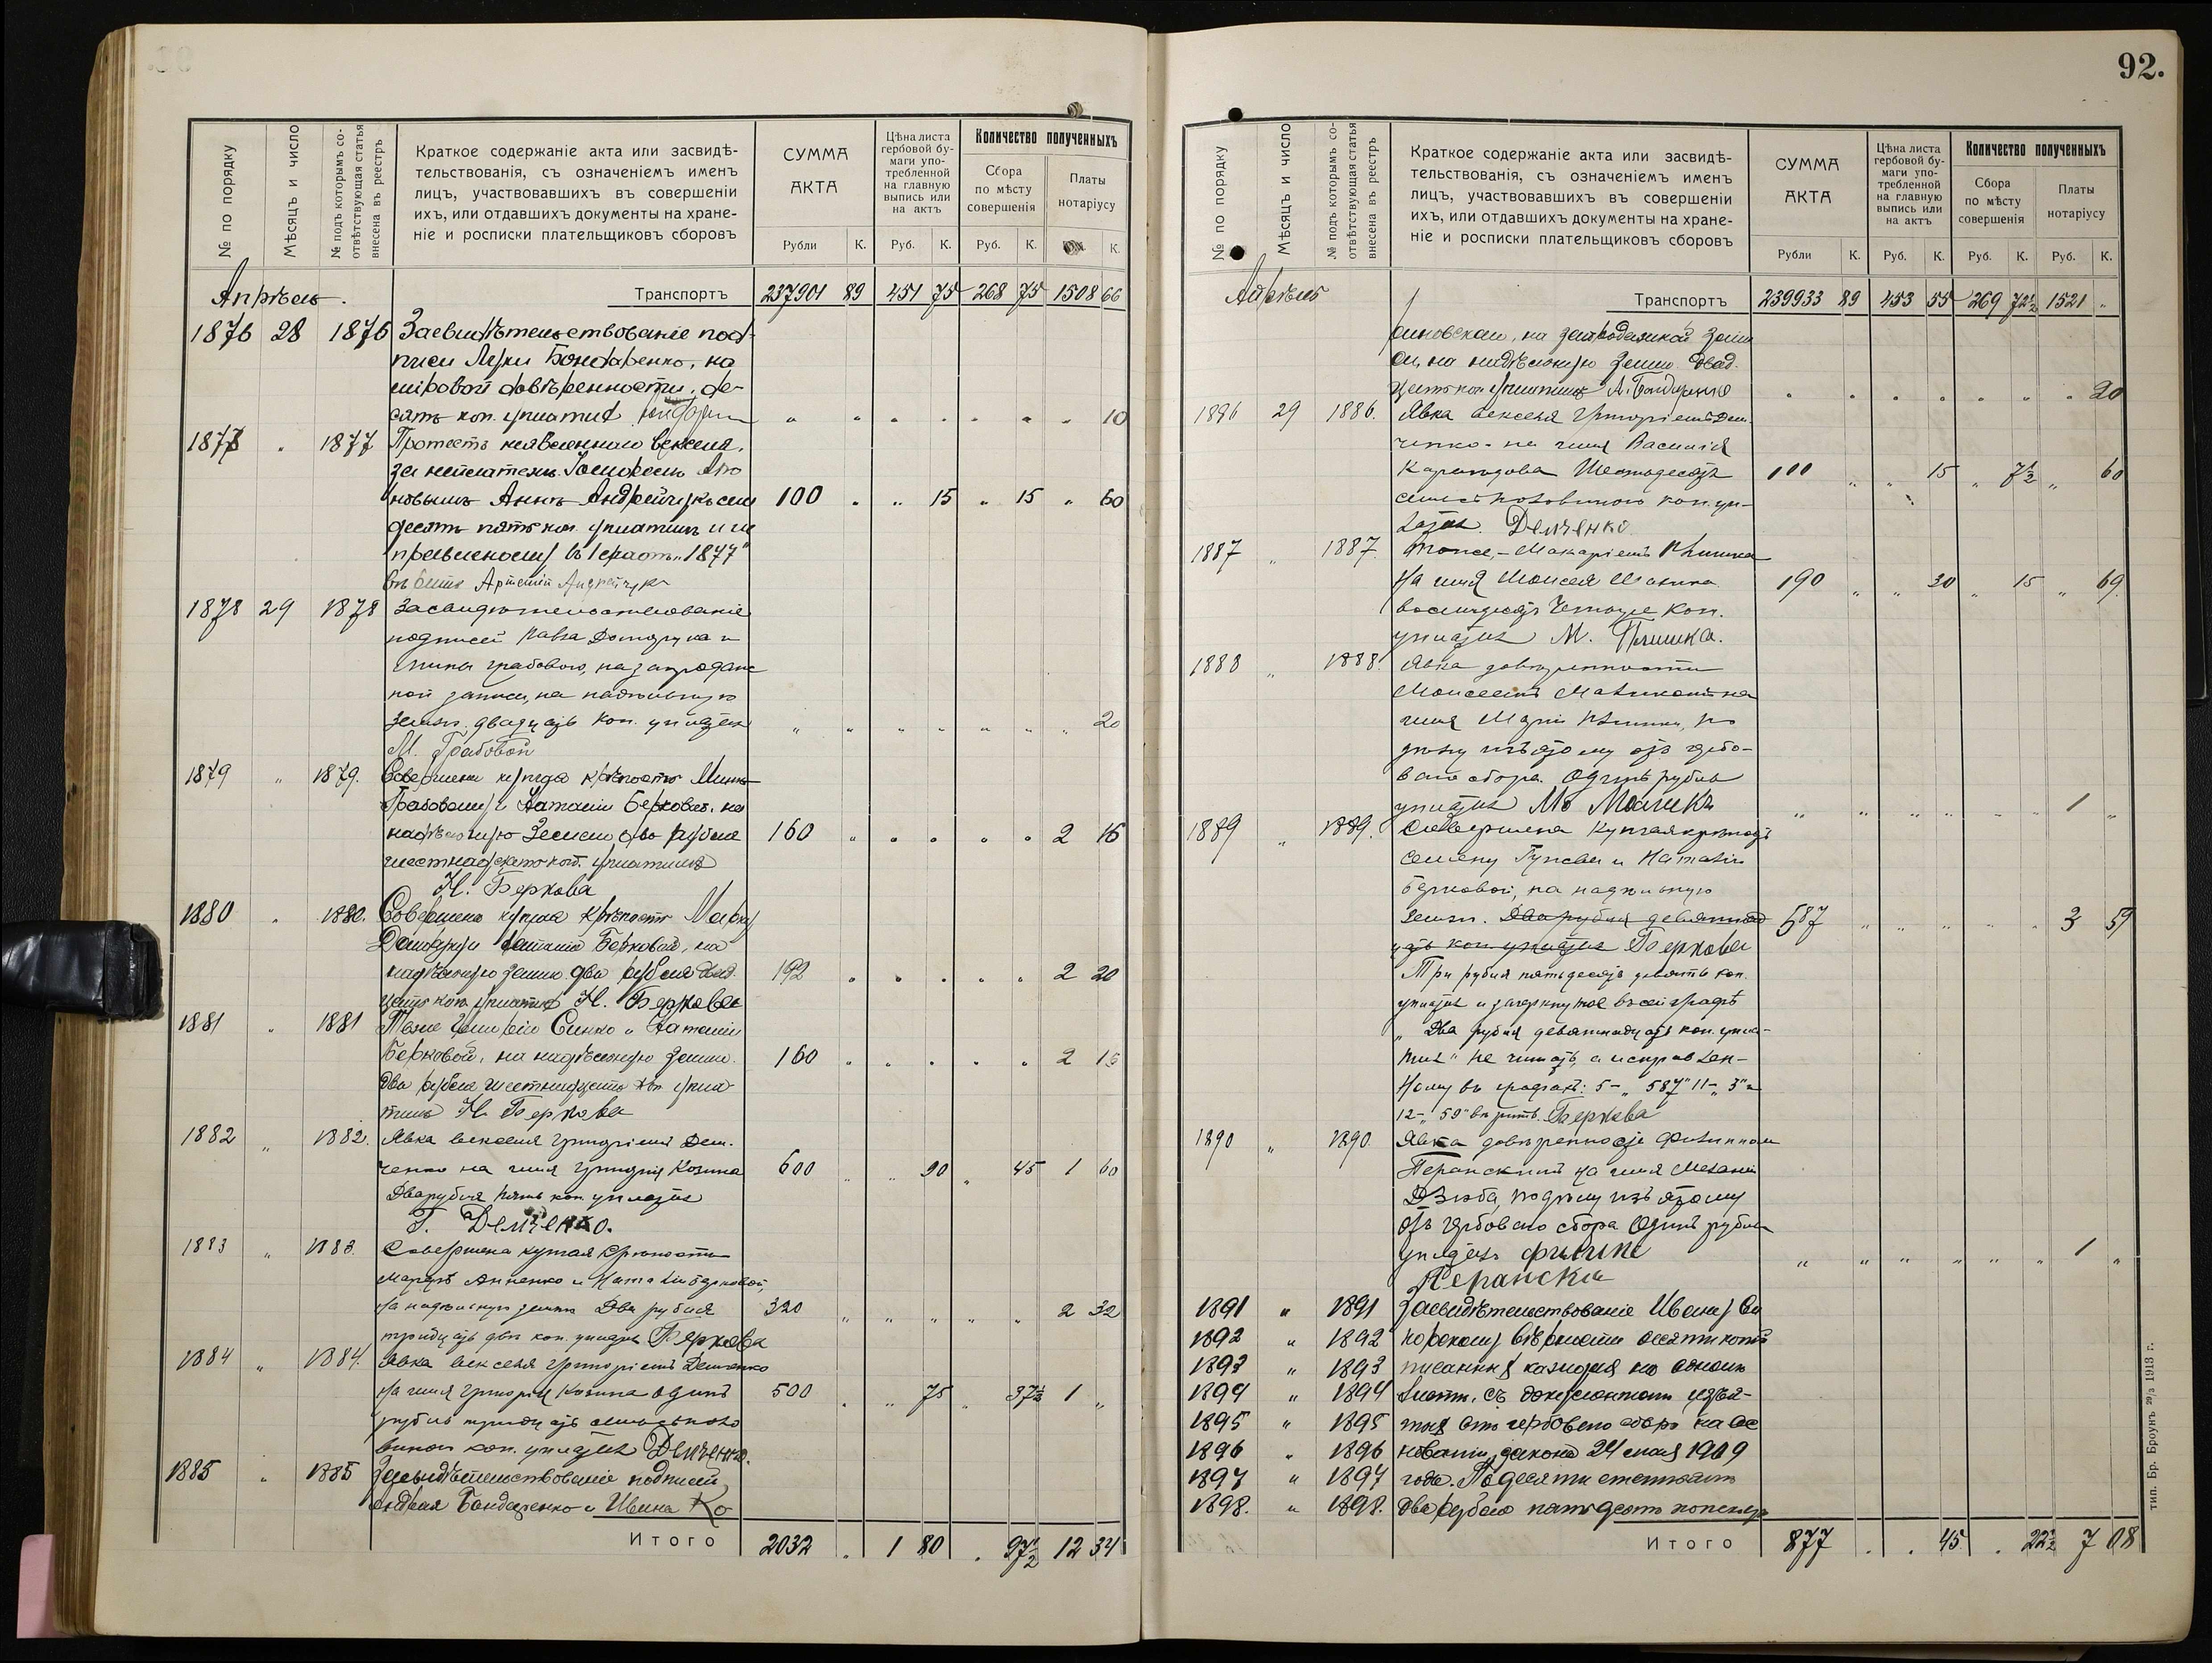 92.
№ по порядку
Мѣсяцъ и число
№ подъ которымъ соотвѣтствующая статья внесена въ реестръ
Краткое содержаніе акта или засвидѣ-
тельствованія, съ означеніемъ именъ
лицъ, участвовавшихъ въ совершеніи
ихъ, или отдавшихъ документы на хране-
ніе и росписки плательщиковъ сборовъ
СУММА
АКТА
Рубли К.
Цѣна листа
гербовой бу-
маги упо-
требленной
на главную
выпись или
на актъ
Руб. К.
Количество полученныхъ
Сбора
по мѣсту
совершенія
Руб. К.
Платы
нотаріусу
К.
Апрѣль. Транспортъ 237901 89 451 75 268 75 1508 66
1876 28 1876 Засвидѣтельствованіе под-
писи Бондаренко, на
довѣренности, де-
сять коп. уплатилъ 10
1877 " 1877 Протестъ неявленнаго векселя,
за неплатежъ
Аннѣ Андрейчукъ сем 100 15 15 60
десять пять коп. уплатилъ и
"1877"
вѣрить Андрейчукъ
1878 29 1878 Засвидѣтельствованіе
подписей Павла и
Грабового, на запродаж
ной записи, на надѣльную
землю. двадцать коп. уплатилъ 20
М. Грабовой
1879 " 1879. Совершена купчая крѣпость
Грабовому и Наталіи Берковой, на
надѣльную землю, два рубля 160 2 16
шестнадцать коп. уплатила
Н. Беркова
1880 " 1880. Совершена купчая крѣпость
Берковой, на
надѣльную землю два рубля двад 192 2 20
цать коп. уплатила Н. Беркова
1881 " 1881 Тоже Синко и Наталіи
Берковой, на надѣльную землю. 160 2 16
Два рубля шестнадцать коп. упла
тила Н. Беркова
1882 " 1882. Явка векселя Григоріемъ Дем-
ченко на имя Григорія Козина 600 90 45 1 60
Два рубля пять коп. уплатилъ
Г. Демченко.
1883 " 1883. Совершена купчая крѣпость
Анненко и Наталіи Берковой,
на надѣльную землю Два рубля 320 2 32
тридцать два коп. уплатила Беркова
1884 " 1884. Явка векселя Григоріемъ Демченко
на имя Григорія Козина одинъ 500 75 37½ 1 "
рубль тридцать семь съ поло
виною коп. уплатилъ Демченко.
1885 " 1885 Засвидѣтельствованіе подписей
Андрея Бондаренко и Ивана Ко
Итого 2032 . 1 80 . 97½ 12 34
№ по порядку
Мѣсяцъ и число
№ подъ которымъ соотвѣтствующая статья внесена въ реестръ
Краткое содержаніе акта или засвидѣ-
тельствованія, съ означеніемъ именъ
лицъ, участвовавшихъ въ совершеніи
ихъ, или отдавшихъ документы на хране-
ніе и росписки плательщиковъ сборовъ
СУММА
АКТА
Рубли К.
Цѣна листа
гербовой бу-
маги упо-
требленной
на главную
выпись или
на актъ
Руб. К.
Количество полученныхъ
Сбора
по мѣсту
совершенія
Руб. К.
Платы
нотаріусу
Руб. К.
Апрѣль Транспортъ 239933 89 453 55 269 72½ 1521 "
на запродажной запи
си, на надѣльную землю. Двад-
цать коп. уплатилъ А. Бондаренко 20
1896 29 1886. Явка векселя Григоріемъ Дем-
ченко на имя Василія
Шестьдесятъ 100 15 7½ 60
семь съ половиною коп. уп-
латилъ. Демченко
1887 " 1887. Тоже,- Макаріемъ Плишка
На имя Моисея Малика 190 30 15 69
восемдесятъ четыре коп.
уплатилъ М. Плишка.
1888 " 1888. Явка довѣренности
Моисеемъ Маликомъ на
имя Плишки, по
дѣлу изъятому отъ гербо-
ваго сбора. Одинъ рубль
уплатилъ Мо Маликъ 1 "
1889 " 1889. Совершена купчая крѣпость
Семену и Наталіи
Берковой, на надѣльную
землю. Два рубля девятнад 587 3 59
цать коп. уплатила Беркова
Три рубля пятьдесятъ девять коп.
уплатила и зачеркнутое въ сей графѣ
"Два рубля девятнадцать коп. упла-
тила" не читать, а исправлен-
ному въ графахъ: 5- "587" 11- "3" и
12- "59" вѣрить. Беркова
1890 " 1890. Явка довѣренности Филиппом
Перанскимъ на имя
Дзюба, по дѣлу изъятому
отъ гербоваго сбора Одинъ рубль
уплатилъ Филипъ 1 "
Перански
1891 " 1891 Засвидѣтельствованіе Ивану
1892 " 1892 вѣрности десяти копій
1893 " 1893 писанныхъ каждая на одномъ
1894 " 1894 листѣ, съ документомъ изъя-
1895 " 1895 тыя отъ гербоваго сбора на ос
1896 " 1896 нованіи закона 24 мая 1909
1897 " 1897 года. По десяти статьямъ
1898. " 1898. два рубля пятьдесятъ копѣекъ
Итого 877 . . 45 . 22½ 7 08
тип. Бр. Броунъ 29/3 1913 г.